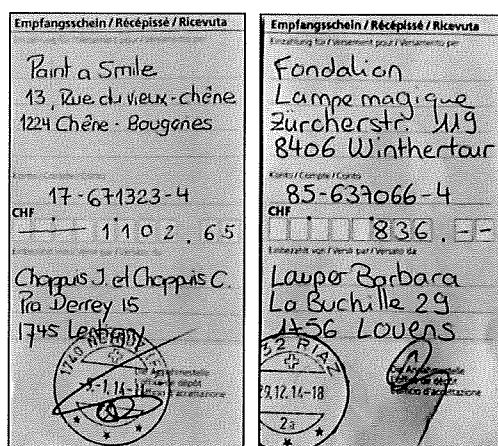 Empfangsschein / Récépissé / Ricevuta
Paint a Smile
13, Rue du vieux-chêne
1224 Chêne - Bougones
Konto / Compte / Conto
17-671323-4
CHF
1102.65
Einbezahlt von / Versé par / Versato da
Chappuis J. et Chappuis C.
Pra Derrey 15
1745 Lentigny
Die Annahmestelle
L'office de dépôt
L'ufficio d'accettazione
Empfangsschein / Récépissé / Ricevuta
Einzahlung für / Versement pour / Versamento per
Fondation
Lampe magique
Zürcherstr. 119
8406 Winthertour
Konto / Compte / Conto
85-637066-4
CHF
836.--
Einbezahlt von / Versé par / Versato da
Lauper Barbara
La Buchille 29
1756 Lovens
32 RIAZ
29.12.14-18
2a
Die Annahmestelle
L'office de dépôt
L'ufficio d'accettazione